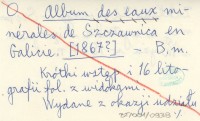 Album des eaux mi-
nérales de Szczawnica en
Galicie. [1867?] - B.m.
Krótki wstęp i 16 lito-
grafii fol. z widokami.
Wydane z okazji udziału